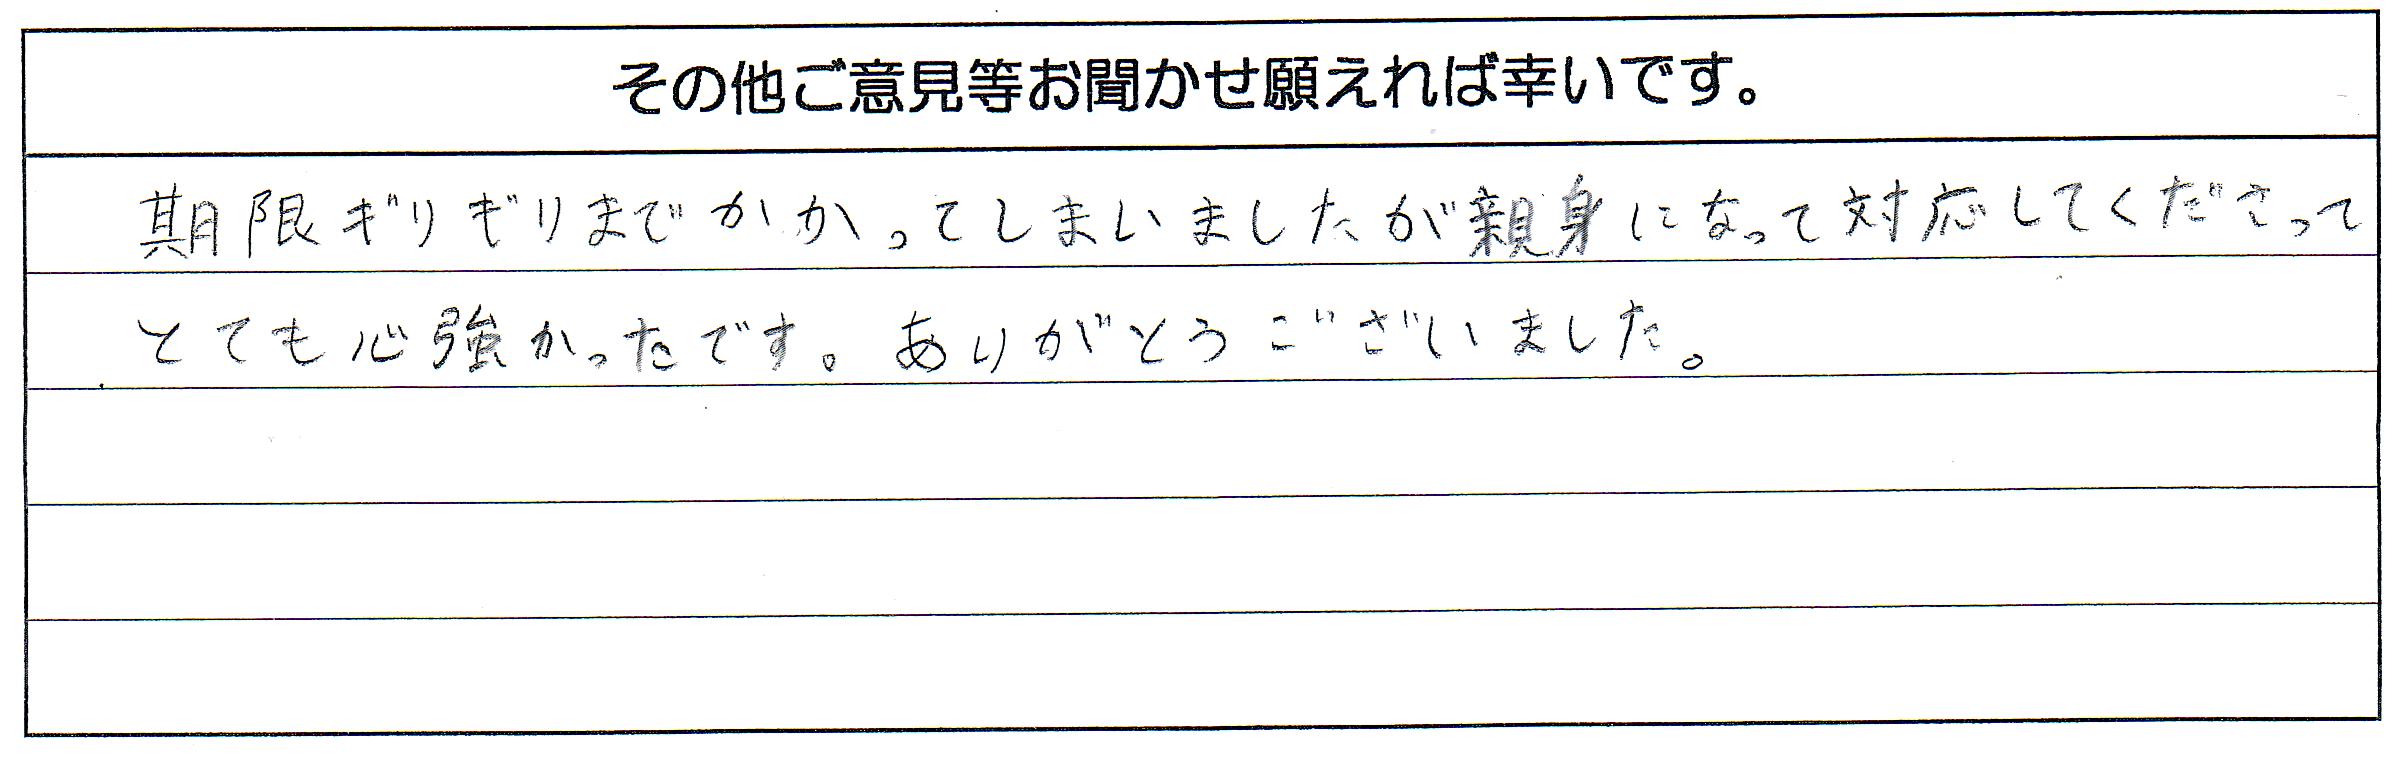 その他ご意見等お聞かせ願えれば幸いです。
期限ギリギリまでかかってしまいましたが親身になって対応してくださって
とても心強かったです。ありがとうございました。